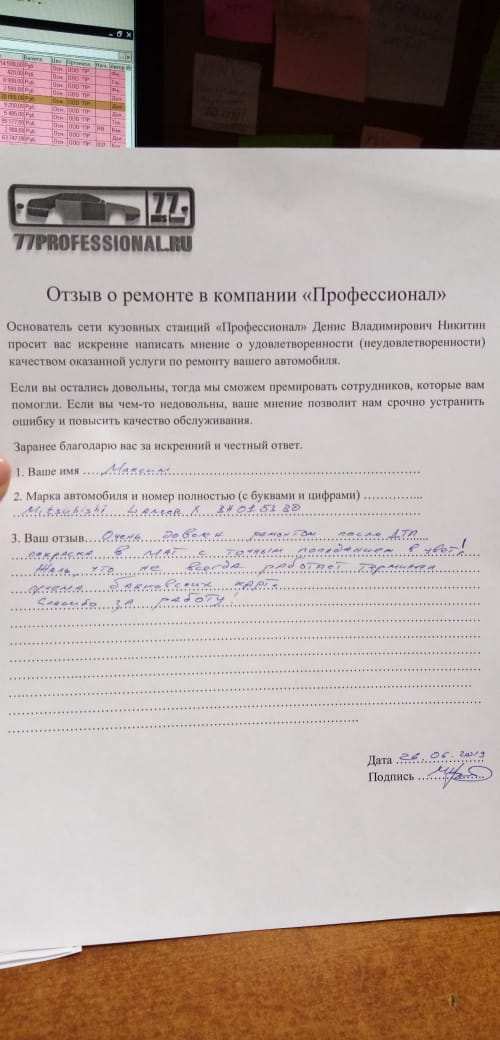 77
77PROFESSIONAL.RU
Отзыв о ремонте в компании «Профессионал»
Основатель сети кузовных станций «Профессионал» Денис Владимирович Никитин
просит вас искренне написать мнение о удовлетворенности (неудовлетворенности)
качеством оказанной услуги по ремонту вашего автомобиля.
Если вы остались довольны, тогда мы сможем премировать сотрудников, которые вам
помогли. Если вы чем-то недовольны, ваше мнение позволит нам срочно устранить
ошибку и повысить качество обслуживания.
Заранее благодарю вас за искренний и честный ответ.
1. Ваше имя Максим
2. Марка автомобиля и номер полностью (с буквами и цифрами)
Mitsubishi Lancer X
3. Ваш отзыв Очень доволен ремонтом после ДТП
покраска в мат с точным попаданием в цвет!
Жаль, что не всегда работает терминал
банковских карт
Спасибо за работу!
Дата 06.2019
Подпись